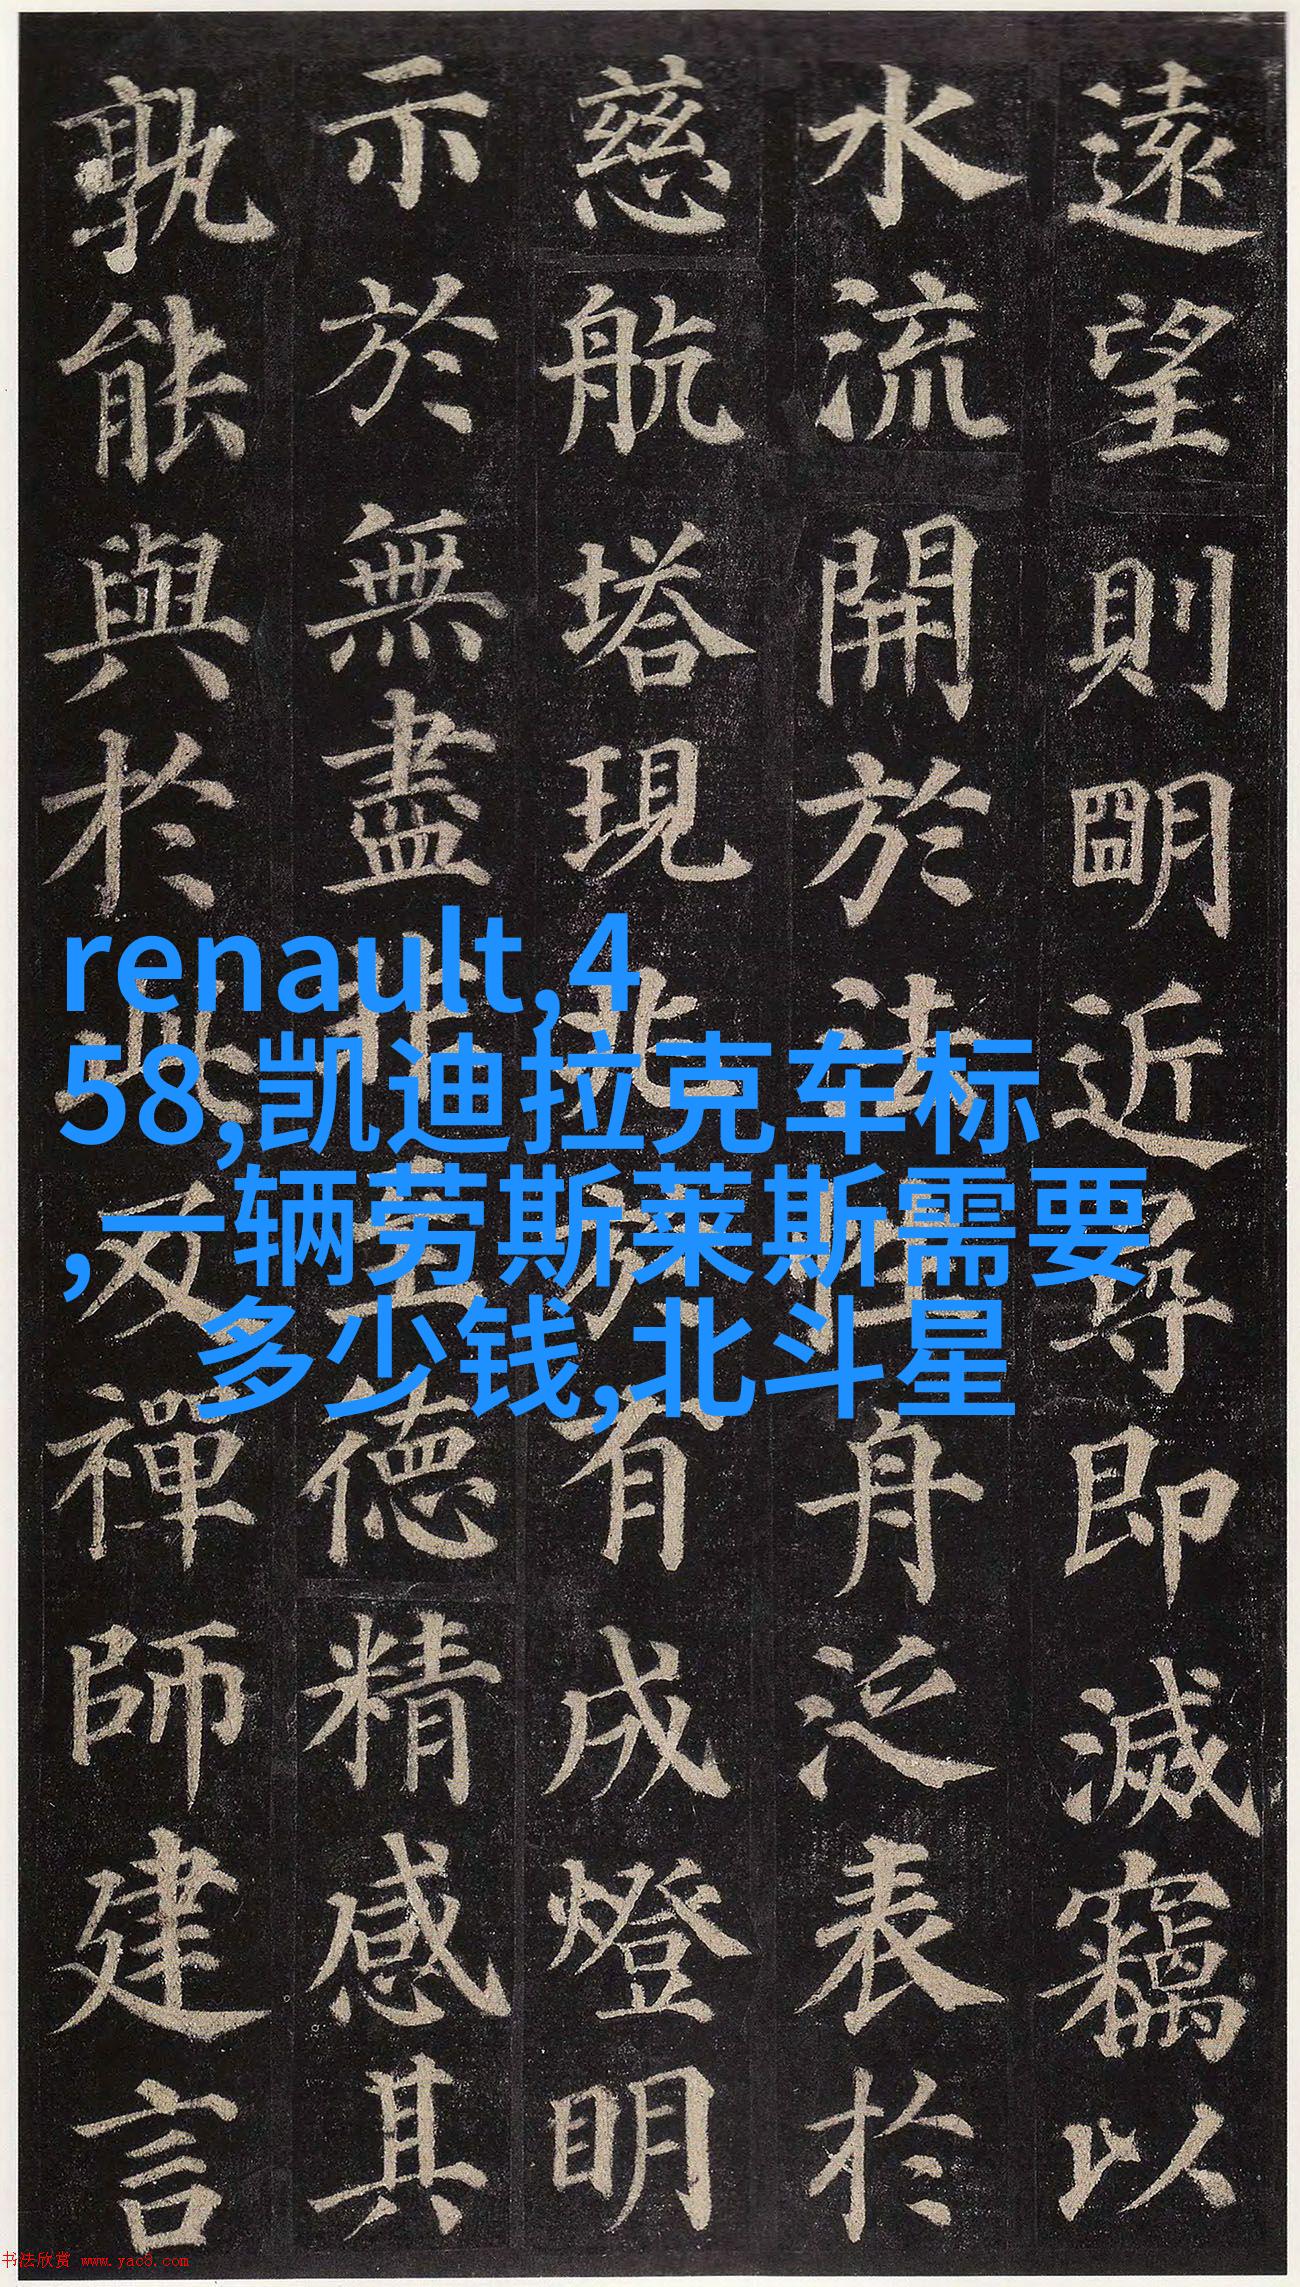 遠望則朙近尋即滅竊以
水流開於法性舟泛表於
慈航塔現兆於有成燈明
示於無盡非至德精感其
孰能與於此及禪師建言
renault,4
58,凯迪拉克车标
,一辆劳斯莱斯需要
多少钱,北斗星
书法欣赏 www.yac8.com